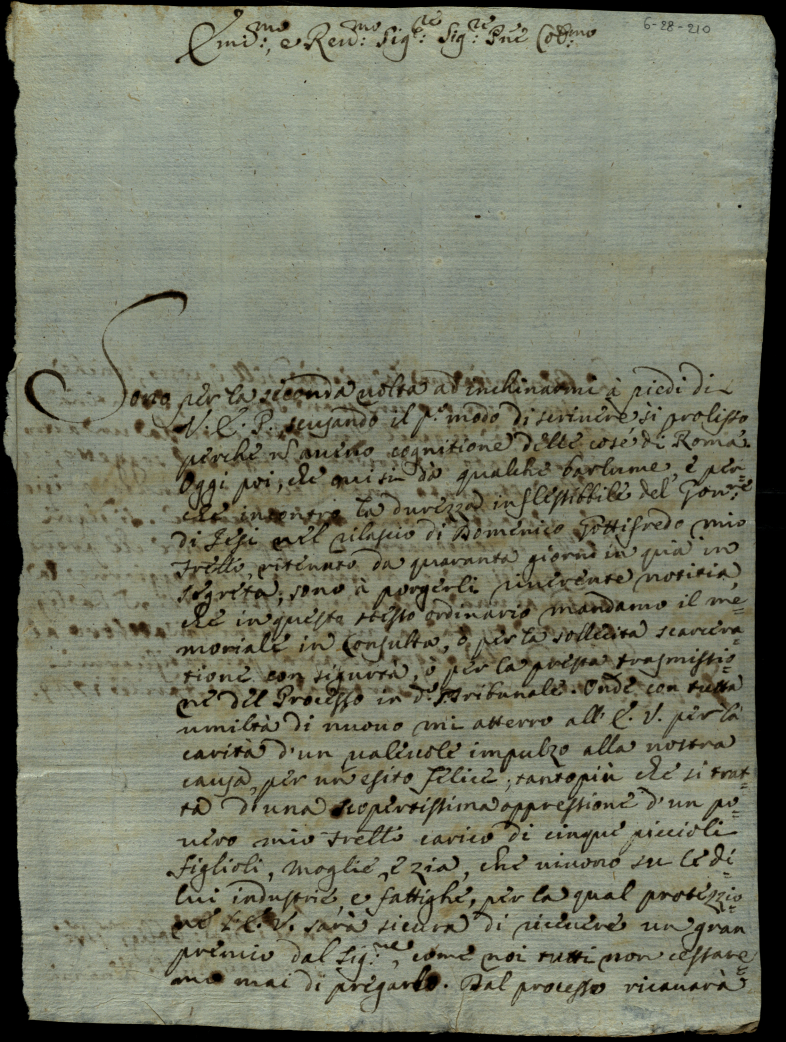 6-28-210
Em:mo, e Rev:mo Sig:re Sig:re Pne Col:mo
Sono per la seconda volta ad inchinarmi à piedi di
V. E. P. scusando il p:o modo di scrivere si prolisso
perche nò avevo cognitione delle cose di Roma.
Oggi poi, che mi si dà qualche barlume, e per-
che incontro la durezza inflessibbile del Gov:re
di Jesi nel rilascio di Domenico Gottifredo mio
frello, ritenuto da quaranta giorni in quà in
segreta, sono à porgerli riverente notitia
che in questo stesso ordinario mandamo il me-
moriale in Consulta, ò per la sollecita scarcera-
tione con sigurtà, ò per la presta trasmissio-
ne del Processo in d:o Tribunale. Onde con tutta
umiltà di nuovo mi atterro all' E. V. per la
carità d'un valevole impulzo alla nostra
causa, per un esito felice, tantopiù che si trat-
ta d'una scopertissima oppressione d'un po-
vero mio frello carico di cinque piccioli
figlioli, moglie, e zia, che vivono su le di
lui industrie, e fattighe, per la qual protezzio-
ne l'E. V. sarà sicura di ricevere un gran
premio dal Sig:re, come noi tutti non cessare-
mo mai di pregarlo. Dal processo ricavarà